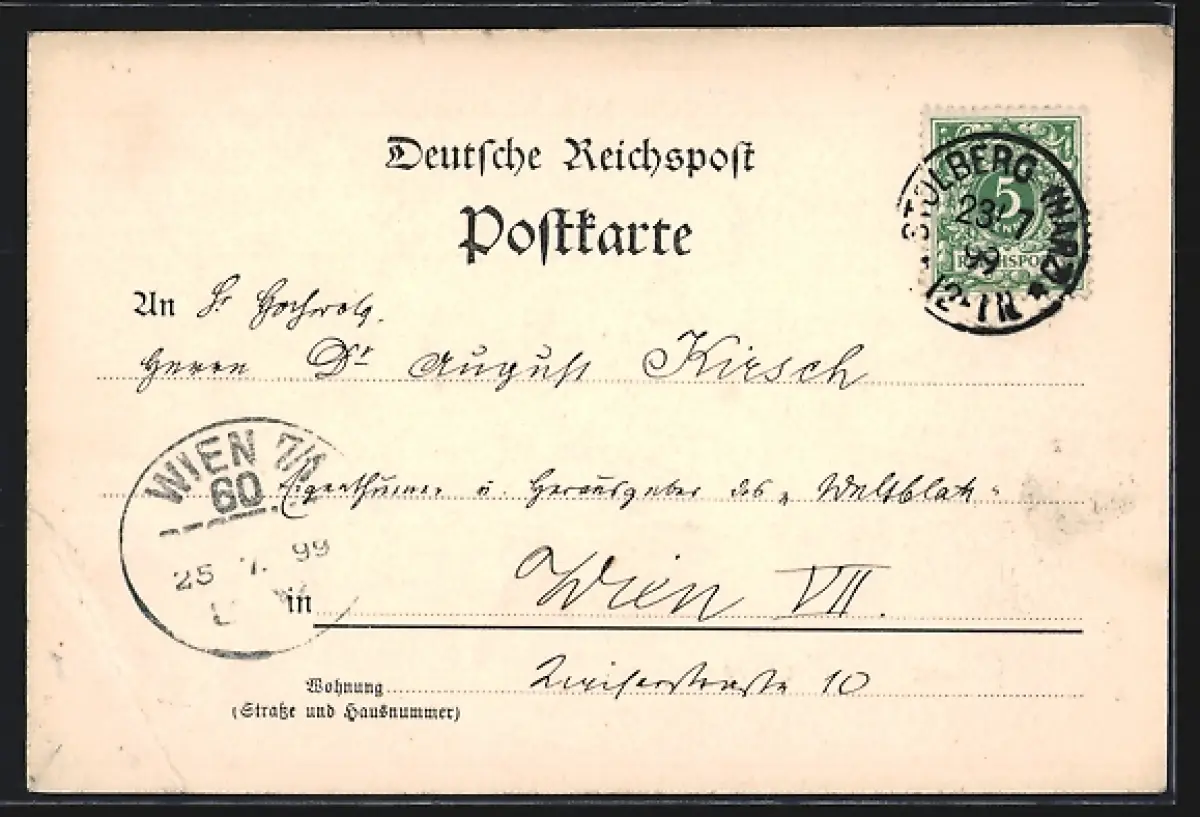 Deutsche Reichspost
Postkarte
5
REICHSPOST
STOLBERG (HARZ)
23/7
99
12-1N
An Sr Hochwolg.
Herrn Dr August Kirsch
WIEN 7/1
60
25 7. 99
Eigenthümer u. Herausgeber des "Weltblatt"
in Wien VII.
Wohnung 10
(Straße und Hausnummer)